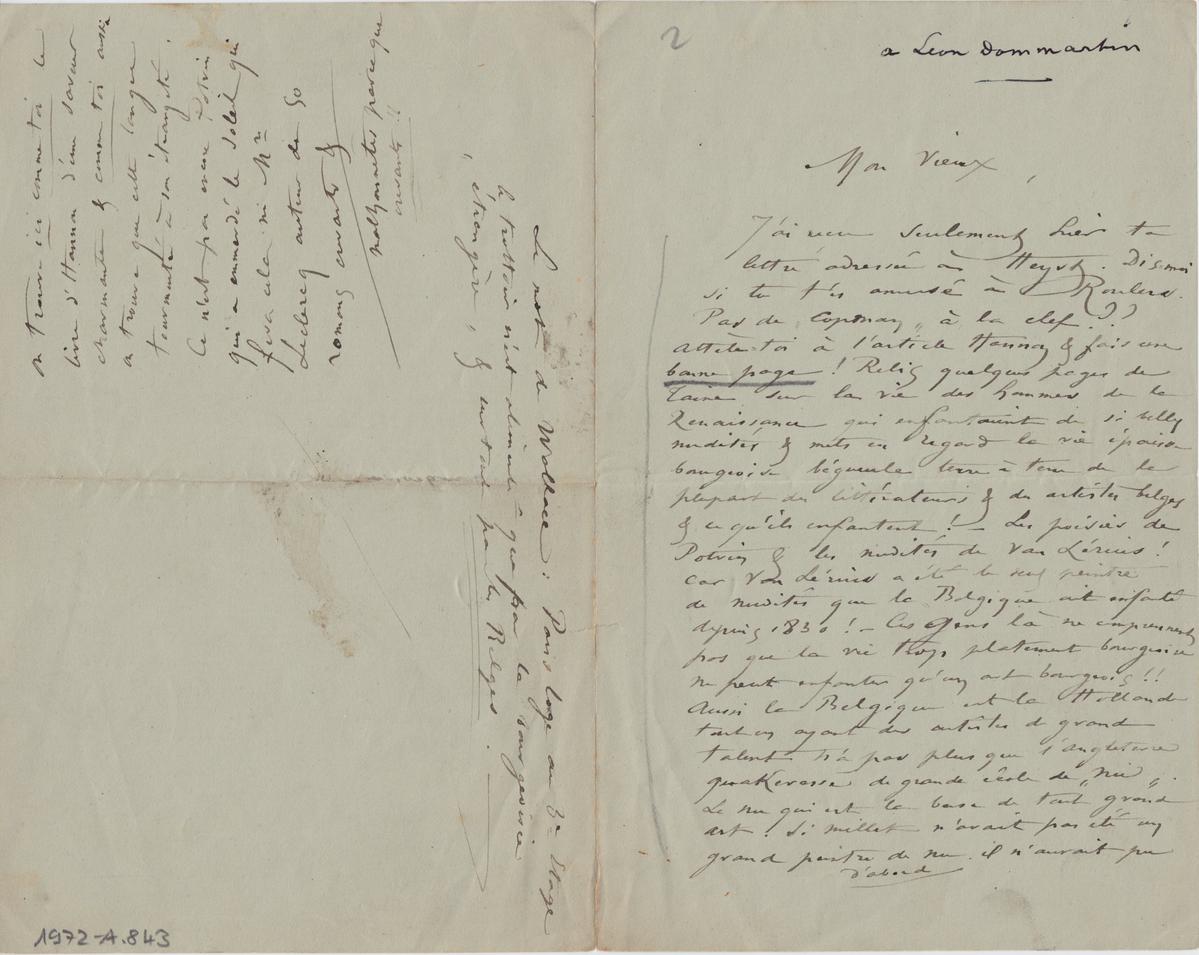 2
a Léon Dommartin
Mon Vieux,
J'ai reçu seulement hier ta
lettre adressée à Heyst. Dis moi
si tu t'es amusé à Roulers.
Pas de Coponay „ à la clef??
Attèle-toi à l'article Hannon & fais une
bonne page ! Relis quelques pages de
Taine sur la vie des hommes de la
Renaissance qui enfantaient de si belles
nudités & mets en regard la vie épaisse
bourgeoise bégueule terre à terre de la
plupart des littérateurs & des artistes belges
& ce qu'ils enfantent ! – Les poésies de
Potvin & les nudités de Van Lérius !
car Van Lérius a été le seul peintre
de nudités que la Belgique ait enfanté
depuis 1830 ! – Ces gens là ne comprennent
pas que la vie trop platement bourgeoise
ne peut enfanter qu'un art bourgeois !!
Aussi la Belgique et la Hollande
tout en ayant des artistes de grand
talent n'a pas plus que l'angleterre
quakeresse de grande école de „nu„.
Le nu qui est la base de tout grand
art ! Si millet n'avait pas été un
grand peintre de nu il n'aurait pu
d'abord
on trouve ici comme toi le
livre d'Hannon d'une saveur
charmante & comme toi aussi
on trouve que cette langue
tourmentée à son étrangeté.
Ce n'est pas encore Potvin
qui a emmerdé le soleil qui
fera cela ni Mr
Leclercq auteur de 50
romans vivants &
malhonnêtes parce que
vivants !!
Le mot de Wallace : Paris loge au 3e étage
le trottoir n'est alimenté que par la bourgeoisie
„ étrangère „ & surtout par les Belges.
1972-A.843